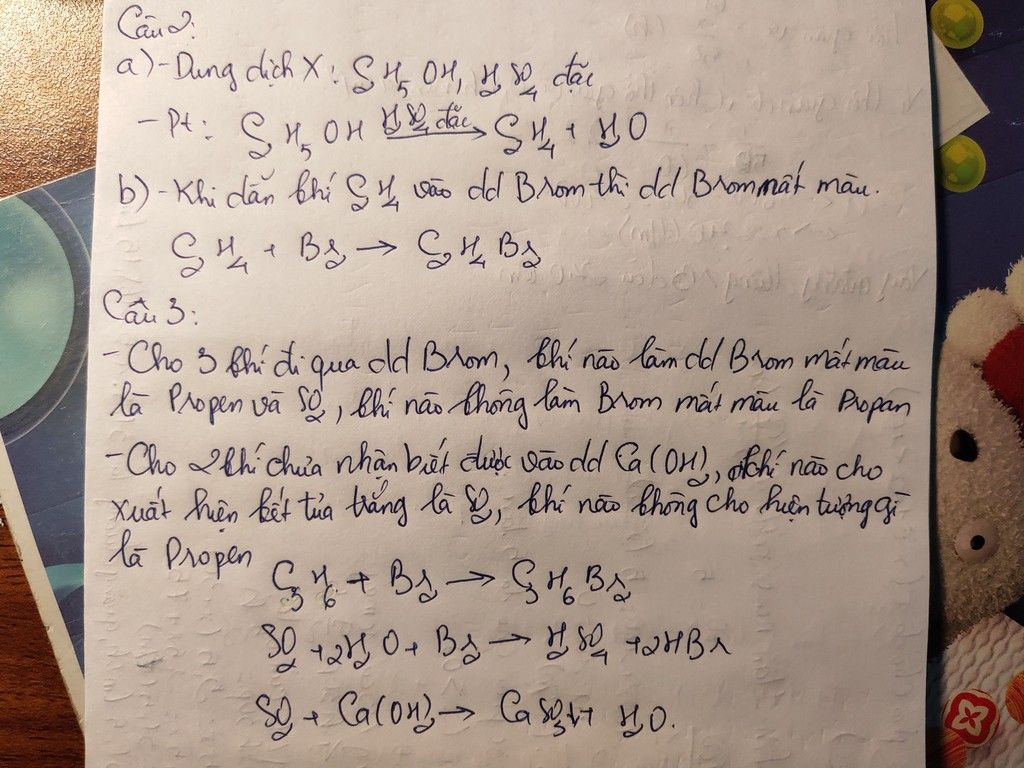 Câu 2:
a) - Dung dịch X: C₂H₅OH, H₂SO₄ đặc
- Pt: C₂H₅OH H₂SO₄ đặc → C₂H₄ + H₂O
b) - Khi dẫn khí C₂H₄ vào dd Brom thì dd Brom mất màu.
C₂H₄ + Br₂ → C₂H₄Br₂
Câu 3:
- Cho 3 khí đi qua dd Brom, khí nào làm dd Brom mất màu
là Propen và SO₂, khí nào không làm Brom mất màu là Propan
- Cho 2 khí chưa nhận biết được vào dd Ca(OH)₂, khí nào cho
xuất hiện kết tủa trắng là SO₂, khí nào không cho hiện tượng gì
là Propen
C₃H₆ + Br₂ → C₃H₆Br₂
SO₂ + 2H₂O + Br₂ → H₂SO₄ + 2HBr
SO₂ + Ca(OH)₂ → CaSO₃↓ + H₂O.